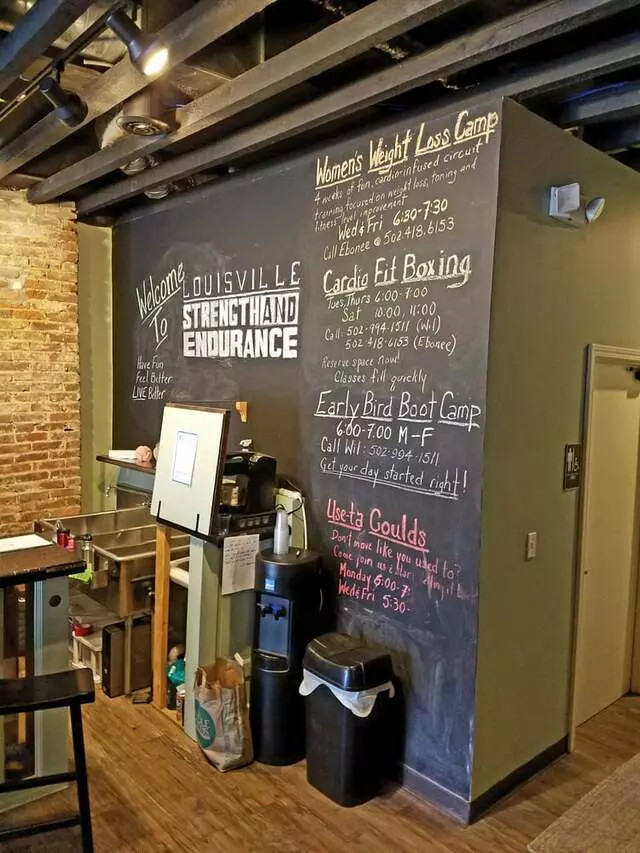 Welcome
To
LOUISVILLE
STRENGTH AND
ENDURANCE
Have Fun
Feel Better
LIVE Better
Women's Weight Loss Camp
4 weeks of fun, cardio-infused circuit
training, focused on weight loss, toning and
fitness level improvement
Wed & Fri 6:30-7:30
Call Ebonee @ 502.418.6153
Cardio Fit Boxing
Tues, Thurs 6:00-7:00
Sat 10:00, 11:00
Call: 502-994-1511 (Wil)
502-418-6153 (Ebonee)
Reserve space now!
Classes fill quickly
Early Bird Boot Camp
6:00-7:00 M-F
Call Wil: 502-994-1511
Get your day started right!
Use-ta Coulds
Don't move like you used to?
Come join us &
Monday 6:00-7:
Wed & Fri 5:30-